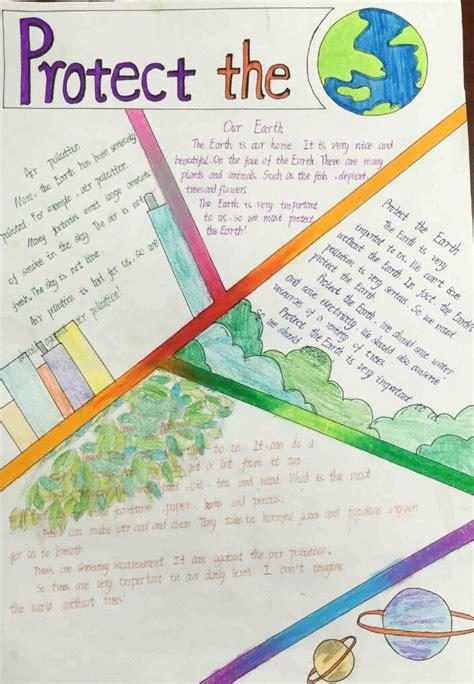 Protect the
Our Earth
The Earth is our home. It is very nice and
beautiful. On the face of the Earth. There are many
plants and animals. Such as the fish. elephant,
trees and flowers.
The Earth is very important
to us. so we must protect
the Earth!
Air pollution
Now. the Earth has been seriously
polluted. For example: air pollution.
Many factories emit large amounts
of smoke in the sky. The air is not
fresh. The sky is not blue.
Air pollution is bad for us. so we
against air pollution!
Protect the Earth
The Earth is very
important to us. We can't live
without the Earth. In fact. the Earth's
pollution is very serious. So we must
protect the Earth.
Protect the Earth. we should save water
and save electricity. We should also conserve
resources of a variety of trees.
Protect the Earth is very important to us
So we should
to us. It can do a
got a lot from it too
oil. tea and wood. Wood is the most
paper, books and pencils.
Trees can make air cool and clean They take in harmful gases and produce oxygen
for us to breath
Trees can Greening environment It can against the air pollution.
So trees are very important in our daily lives I can't imagine
the world without trees!